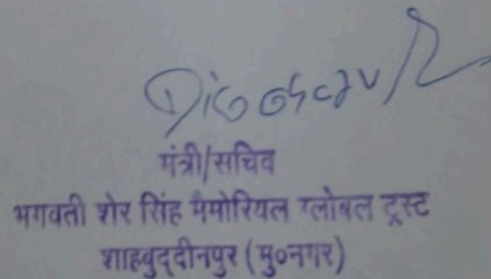 मंत्री/सचिव
भगवती शेर सिंह मैमोरियल ग्लोबल ट्रस्ट
शाहबुद्दीनपुर (मु०नगर)